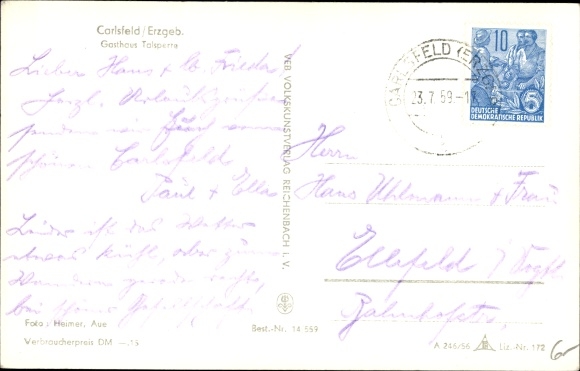 Carlsfeld/Erzgeb.
Gasthaus Talsperre
Lieber Hans + lb. Frieda!
Herzl. Urlaubsgrüße
senden wir Euch vom
schönen Carlsfeld
Paul + Ella
Leider ist das Wetter
etwas kühl, aber zum
Wandern gerade recht,
bei schöner
Foto: Heimer, Aue
Verbraucherpreis DM —,15
VEB VOLKSKUNSTVERLAG REICHENBACH i. V.
Best.-Nr. 14 559
CARLSFELD (ERZGEB)
23.7.59
10
5
DEUTSCHE
DEMOKRATISCHE REPUBLIK
Herrn
Hans Uhlmann + Frau
Ellefeld / Vogtl.
Bahnhofstr.
A 246/56 Liz.-Nr. 172